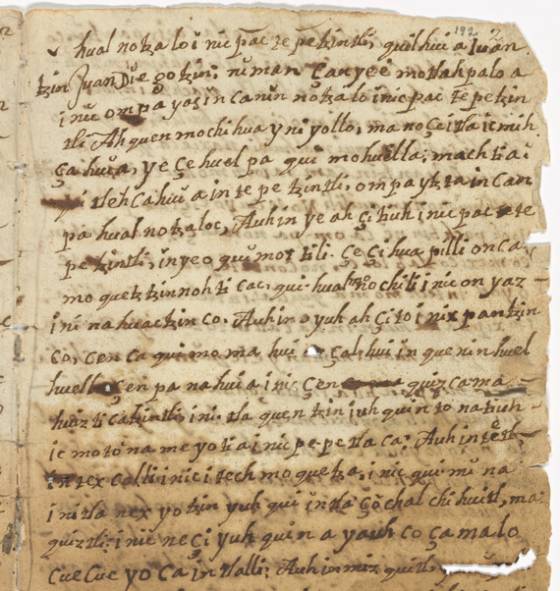 hual notza lo i nic pac te petzintli, quilhui a Iuan
tzin Juan Die go tzin; niman Ca yeé motlah palo a
inic ompa yaz in Canin notza lo inic pac te petzin
tli Ah quen mochi hua y ni yollo, ma noçe itla ic mih
ça huia, ye Çe huel pa qui mo huella, mach tia i
tleh Cahui a in te pe tzintli, ompa ytztia in Cam
pa hual notzaloc, Auh in ye ah çi tiuh inic pac te
pe tzintli, in yeo qui mot tili. Çe çi hua pilli onca,
mo quetz tzin noh ti Cac, qui hual mo nochili inic on yaz
i ni nahuactzin co. Auh in o yuh ah çi to i nix pan tzin
co, cen Ca qui mo ma hui çal hui in quenin huel
huella Çen pa nahui a inic Çen quiz cama
huiz ti catzintli, ini tla quen tzin juh quin to natiuh
ic mo to na me yo ti a inic pe pe tla ca: Auh in tetl
in tex calli inic i tech mo quetza, inic qui mi na
i ni tla nex yo tzin yuh qui in tla ço chal chi huitl, ma
quiztli: inic ne çi yuh quin a yauh co ça ma lo
Cue Cue yo Ca in tlalli: Auh in miz quitl